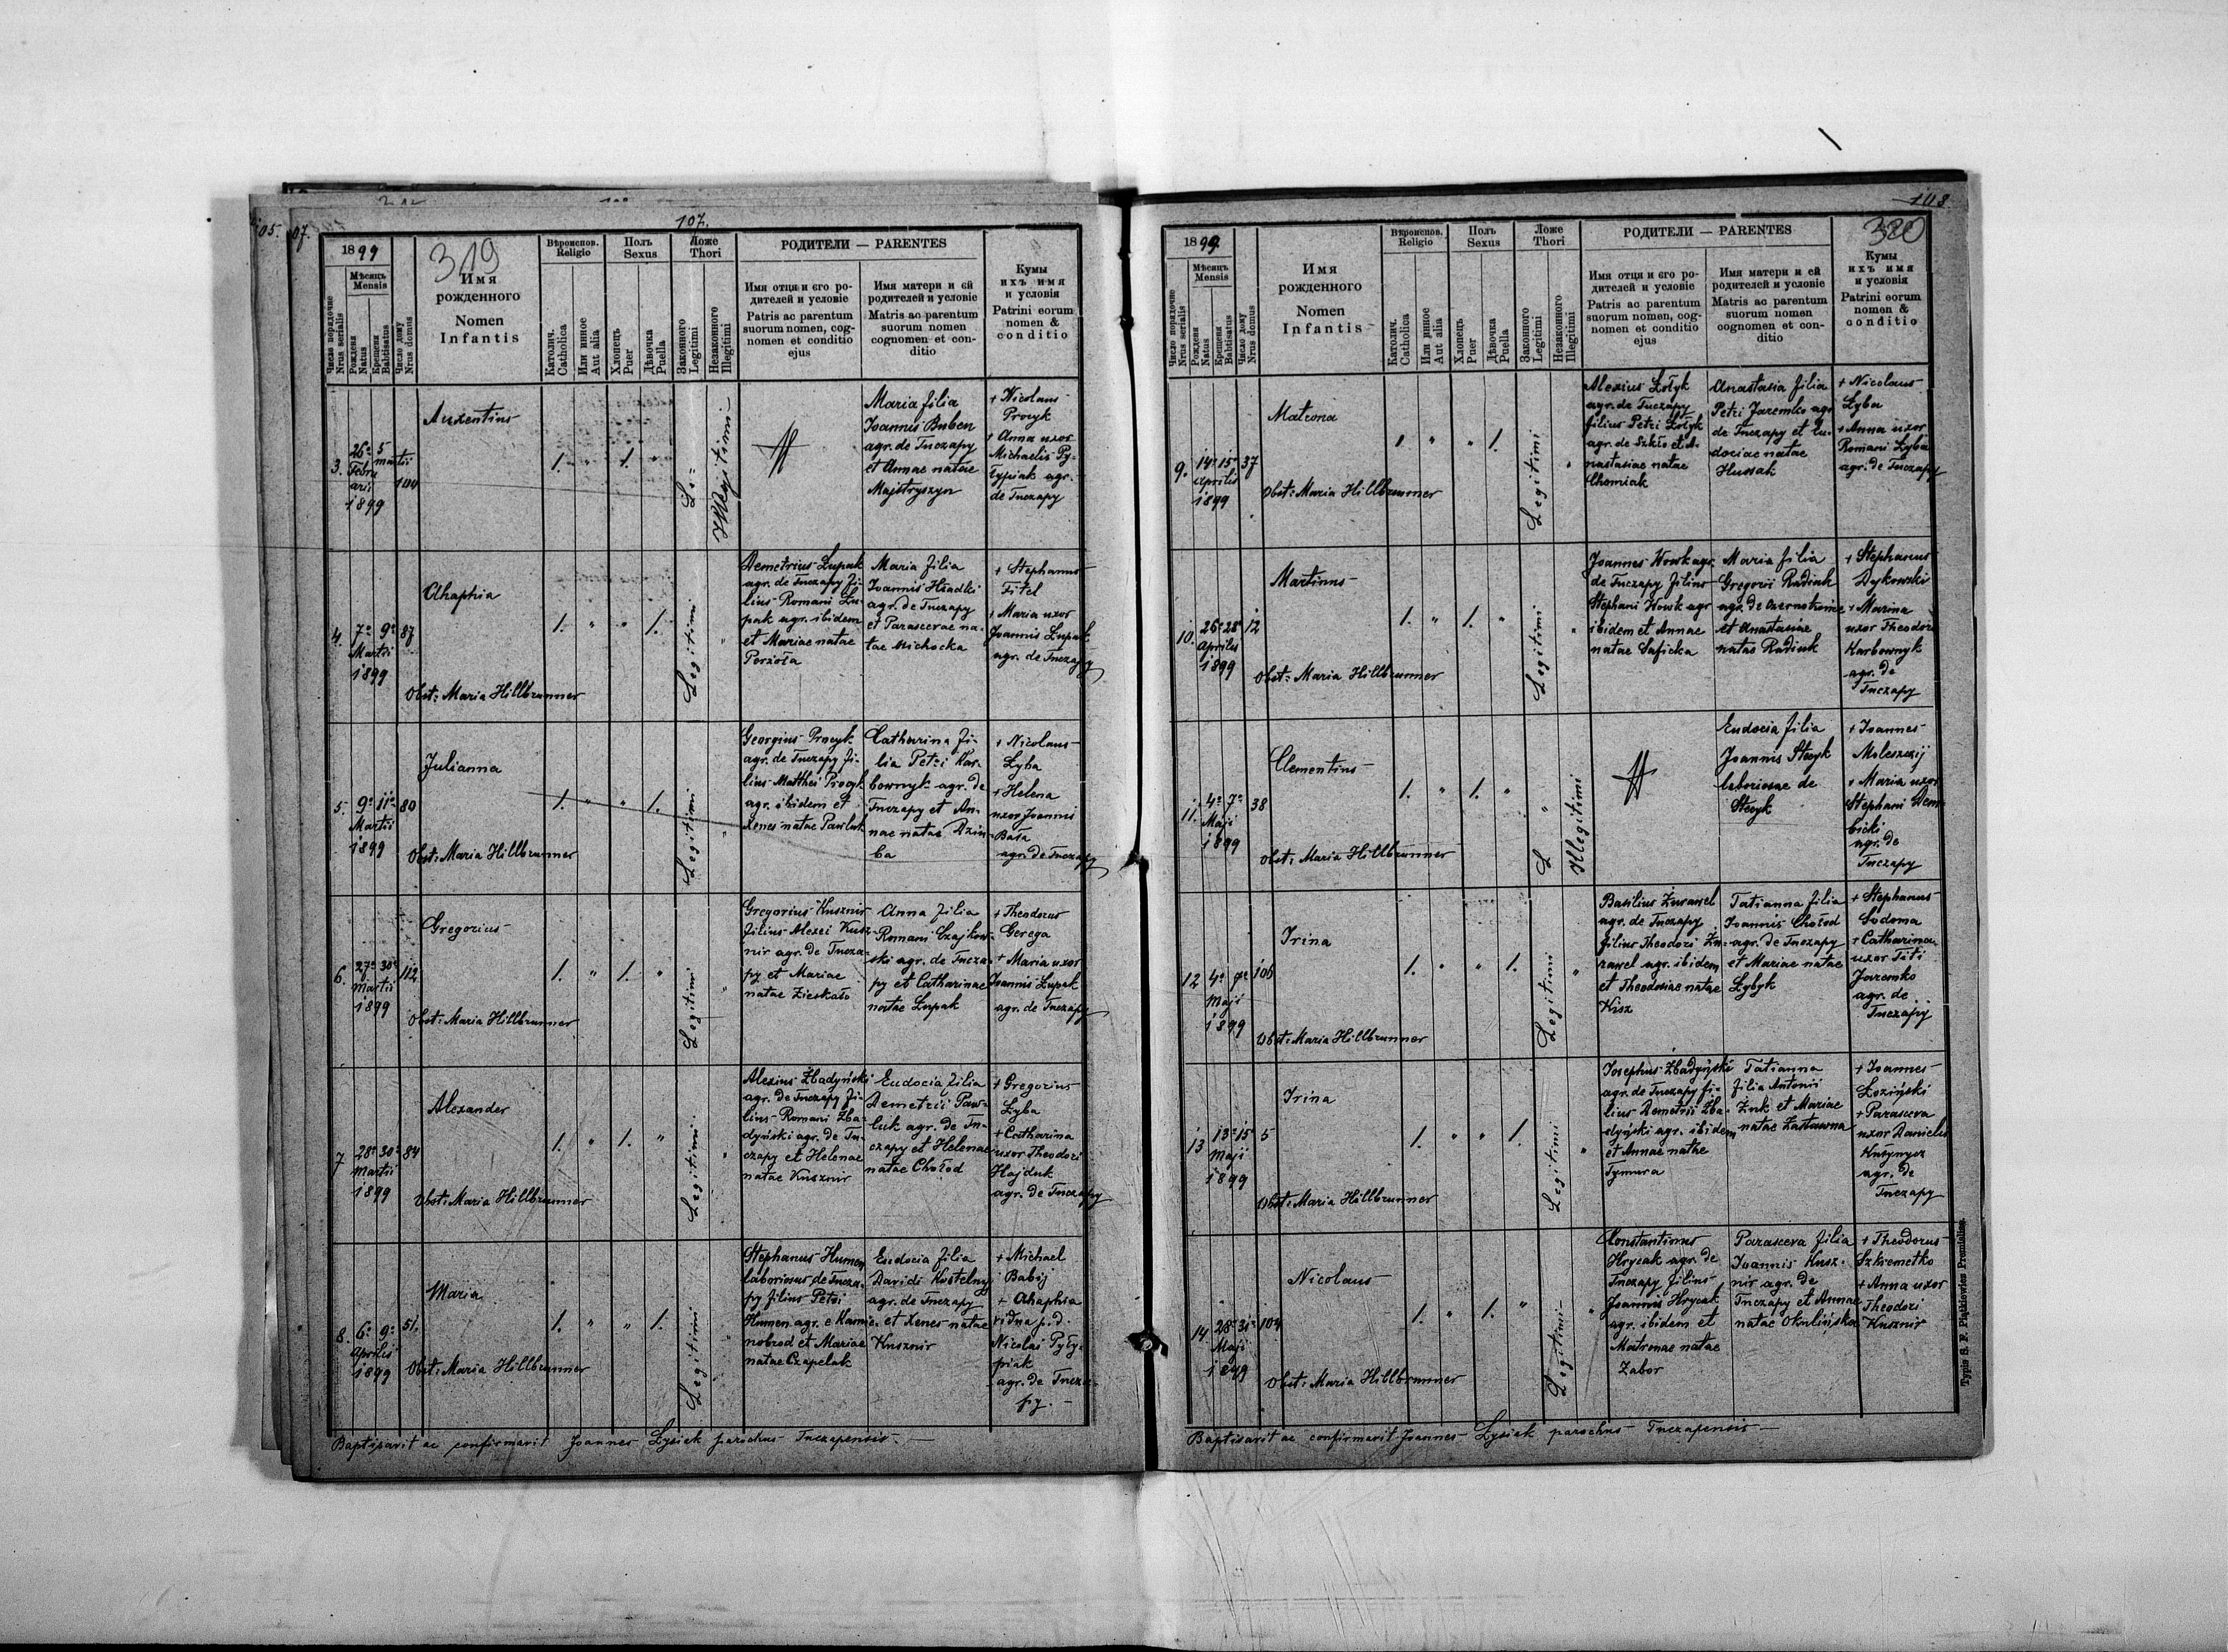 107.
1899
319
Число порядочне
Nrus serialis
Мѣсяць
Mensis
Рожденя
Natus
Крещеня
Babtisatus
Число дому
Nrus domus
Имя
рожденного
Nomen
Infantis
Вѣроиспов.
Religio
Католич.
Catholica
Или инное
Aut alia
Полъ
Sexus
Хлопець
Puer
Дѣвочка
Puella
Ложе
Thori
Законного
Legitimi
Незаконного
Illegitimi
РОДИТЕЛИ — PARENTES
Имя отця и єго ро-
дителей и условіє
Patris ac parentum
suorum nomen, cog-
nomen et conditio
ejus
Имя матери и єй
родителей и условіє
Matris ac parentum
suorum nomen
cognomen et con-
ditio
Кумы
ихъ имя
и условія
Patrini eorum
nomen &
conditio
3.
26ª 5
Febru martii
arii
1899
104
Auxentius
1. " 1. "
Illegitimi
Maria filia
Joannis Buben
agr. de Tuczapy
et Annae natae
Majstryszyn
+ Nicolaus
Procyk
+ Anna uxor
Michaelis Py-
łypiak agr.
de Tuczapy
4.
7ª 9ª
Martii
1899
87
Ahaphia
Obst: Maria Hillbrunner
1. " " 1.
Legitimi "
Demetrius Łupak
agr. de Tuczapy fi-
lius Romani Łu-
pak agr. ibidem
et Mariae natae
Porżoła
Maria filia
Joannis Hładki
agr. de Tuczapy
et Parascevae na-
tae Michocka
+ Stephanus
Fitel
+ Maria uxor
Joannis Łupak
agr. de Tuczapy
5.
9ª 11ª
Martii
1899
80
Julianna
Obst: Maria Hillbrunner
1. " " 1.
Legitimi "
Georgius Procyk
agr. de Tuczapy fi-
lius Matthei Procyk
agr. ibidem et
Xenes natae Pawluk
Catharina fi-
lia Petri Kar-
bownyk agr. de
Tuczapy et An-
nae natae Dziu-
ba
+ Nicolaus
Łyba
+ Helena
uxor Joannis
Bała
agr. de Tuczapy
6.
27ª 30ª
Martii
1899
112
Gregorius
Obst: Maria Hillbrunner
1. " 1. "
Legitimi "
Gregorius Kusznir
filius Alexei Kusz-
nir agr. de Tucza-
py et Mariae
natae Zieskało
Anna filia
Romani Czajkow-
ski agr. de Tucza-
py et Catharinae
natae Łupak
+ Theodorus
Gerega
+ Maria uxor
Joannis Łupak
agr. de Tuczapy
7
28ª 30ª
Martii
1899
84
Alexander
Obst: Maria Hillbrunner
1. " 1. "
Legitimi "
Alexius Żbadyński
agr. de Tuczapy fi-
lius Romani Żba-
dyński agr. de Tu-
czapy et Helenae
natae Kusznir
Eudocia filia
Demetrii Paw-
luk agr. de Tu-
czapy et Helenae
natae Chołod
+ Gregorius
Łyba
+ Catharina
uxor Theodori
Hajduk
agr. de Tuczapy
8.
6ª 9ª
Aprilis
1899
51.
Maria
Obst: Maria Hillbrunner
1. " " 1.
Legitimi "
Stephanus Humen
laboriosus de Tucza-
py filius Petri
Humen agr. e Kamie-
nobrod et Mariae
natae Czapelak
Eudocia filia
Davidi Kostelny
agr. de Tuczapy
et Xenes natae
Kusznir
+ Michael
Babij
+ Ahaphia
vidua p. d.
Nicolai Pyły-
piak
agr. de Tucza-
py.
Baptisavit ac confirmavit Joannes Łysiak parochus Tuczapensis.
108
1899
380
Число порядочне
Nrus serialis
Мѣсяць
Mensis
Рожденя
Natus
Крещеня
Babtisatus
Число дому
Nrus domus
Имя
рожденного
Nomen
Infantis
Вѣроиспов.
Religio
Католич.
Catholica
Или инное
Aut alia
Полъ
Sexus
Хлопець
Puer
Дѣвочка
Puella
Ложе
Thori
Законного
Legitimi
Незаконного
Illegitimi
РОДИТЕЛИ — PARENTES
Имя отця и єго ро-
дителей и условіє
Patris ac parentum
suorum nomen, cog-
nomen et conditio
ejus
Имя матери и єй
родителей и условіє
Matris ac parentum
suorum nomen
cognomen et con-
ditio
Кумы
ихъ имя
и условія
Patrini eorum
nomen &
conditio
9.
14ª 15ª
Aprilis
1899
37
Matrona
Obst: Maria Hillbrunner
1 " " 1.
Legitimi "
Alexius Żołyk
agr. de Tuczapy
filius Petri Żołyk
agr. de Szkło et A-
nastasiae natae
Chomiak
Anastasia filia
Petri Jaremko agr.
de Tuczapy et Eu-
dociae natae
Hussak
+ Nicolaus
Łyba
+ Anna uxor
Romani Łyba
agr. de Tuczapy
10.
26ª 28ª
Aprilis
1899
12
Martinus
Obst: Maria Hillbrunner
1. " 1. "
Legitimi "
Joannes Wowk agr.
de Tuczapy filius
Stephani Wowk agr.
ibidem et Annae
natae Saficka
Maria filia
Gregorii Radiuk
agr. de
et Anastasiae
natae Radiuk
+ Stephanus
Dykowski
+ Marina
uxor Theodori
Karbownyk
agr. de
Tuczapy
11.
4ª 7ª
Maji
1899
38
Clementius
Obst: Maria Hillbrunner
1. " 1. "
Illegitimi
Eudocia filia
Joannis Stecyk
laboriosae de
Stecyk
+ Joannes
Moleszczij
+ Maria uxor
Stephani Dem-
bicki
agr. de
Tuczapy
12
4ª 9ª
Maji
1899
106
Irina
Obst: Maria Hillbrunner
1. " " 1.
Legitimi "
Basilius Żurawel
agr. de Tuczapy
filius Theodori Żu-
rawel agr. ibidem
et Theodosiae natae
Kisz
Tatianna filia
Joannis Chołod
agr. de Tuczapy
et Mariae natae
Łybyk
+ Stephanus
Sodoma
+ Catharina
uxor Titi
Jaremko
agr. de
Tuczapy
13
13ª 15ª
Maji
1899
5
Irina
Obst: Maria Hillbrunner
1. " " 1.
Legitimi "
Josephus Żbadyński
agr. de Tuczapy fi-
lius Demetrii Żba-
dyński agr. ibidem
et Annae natae
Tymura
Tatianna
filia Antonii
Żuk et Mariae
natae Zastawna
+ Joannes
Łoziński
+ Parasceva
uxor Danielis
Kuszynycz
agr. de
Tuczapy
14
28ª 31ª
Maji
1899
104
Nicolaus
Obst: Maria Hillbrunner
1. " 1. "
Legitimi "
Constantinus
Hrycak agr. de
Tuczapy filius
Joannis Hrycak
agr. ibidem et
Matronae natae
Zabor
Parasceva filia
Joannis Kusz-
nir agr. de
Tuczapy et Annae
natae Okulińska
+ Theodorus
Szkremetko
+ Anna uxor
Theodori
Kusznir
Baptisavit ac confirmavit Joannes Łysiak parochus Tuczapensis
Typis S. F. Piątkiewicz Premisliae.